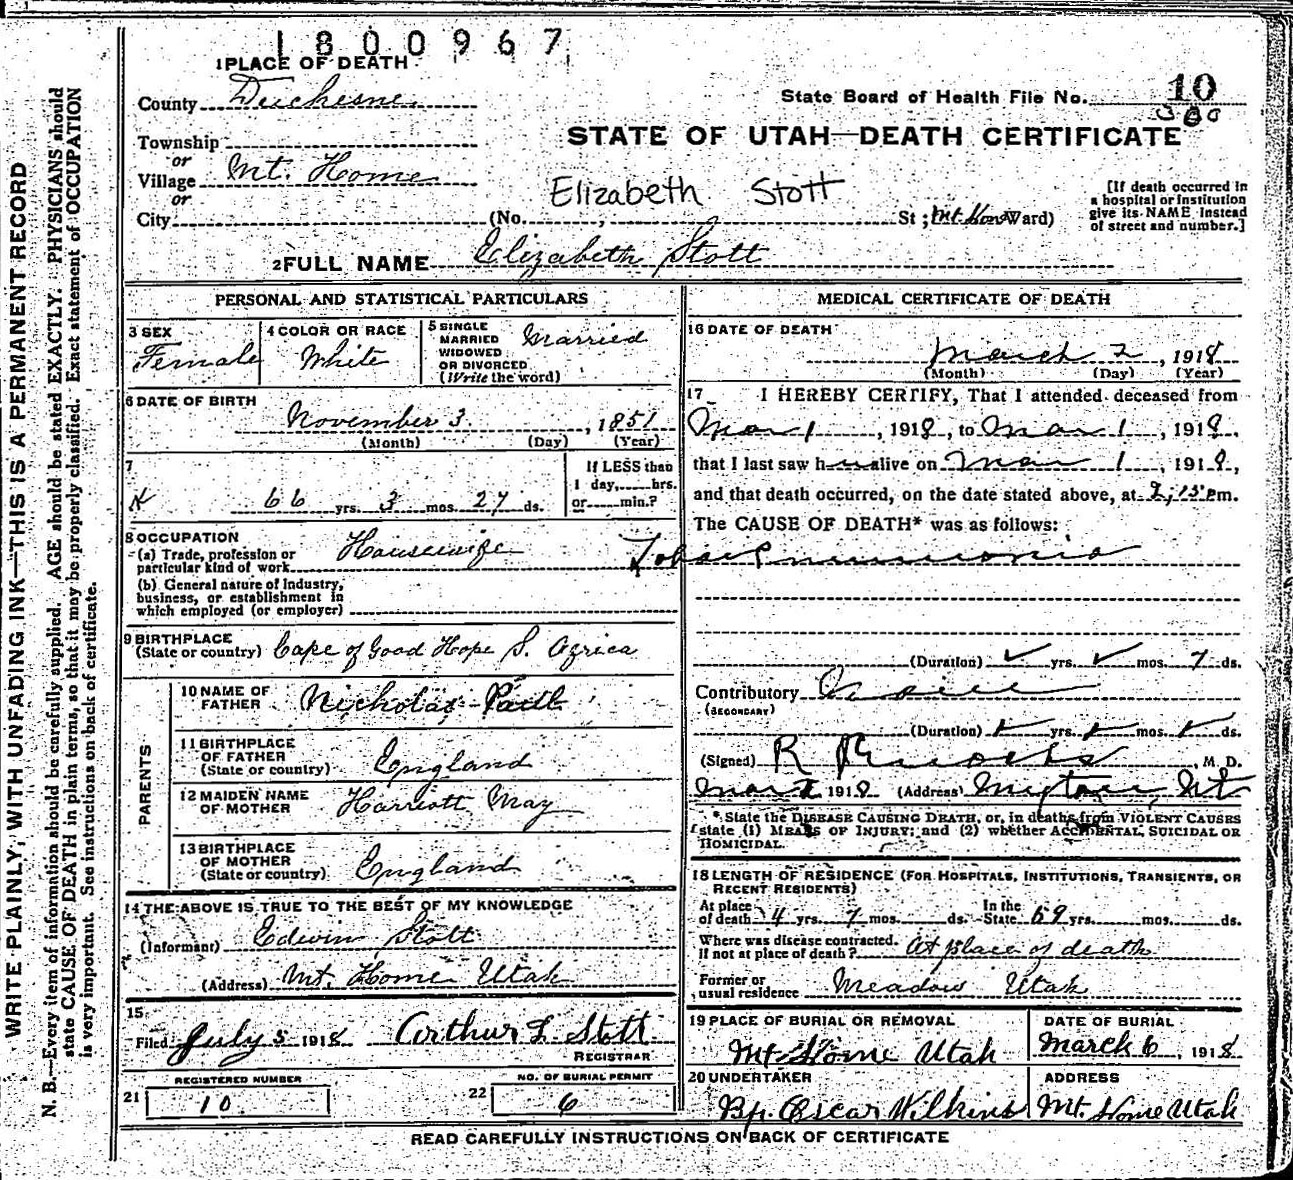 1800967
1 PLACE OF DEATH
County Duchesne
State Board of Health File No. 10
300
Township
or
Village Mt. Home
or
City
STATE OF UTAH—DEATH CERTIFICATE
Elizabeth Stott
(No. , St ; Mt. Home Ward)
[If death occurred in
a hospital or institution
give its NAME instead
of street and number.]
2 FULL NAME Elizabeth Stott
PERSONAL AND STATISTICAL PARTICULARS
3 SEX
Female
4 COLOR OR RACE
White
5 SINGLE
MARRIED
WIDOWED
OR DIVORCED
(Write the word)
Married
6 DATE OF BIRTH
November 3, 1851
(Month) (Day) (Year)
7
66 yrs. 3 mos. 27 ds.
If LESS than
1 day, hrs.
or min.?
8 OCCUPATION
(a) Trade, profession or
particular kind of work Housewife
(b) General nature of industry,
business, or establishment in
which employed (or employer)
9 BIRTHPLACE
(State or country) Cape of Good Hope S. Africa
PARENTS
10 NAME OF
FATHER Nicholas Paul
11 BIRTHPLACE
OF FATHER
(State or country) England
12 MAIDEN NAME
OF MOTHER Harriott May
13 BIRTHPLACE
OF MOTHER
(State or country) England
14 THE ABOVE IS TRUE TO THE BEST OF MY KNOWLEDGE
(Informant) Edwin Stott
(Address) Mt. Home Utah
15
Filed July 5 1918 Arthur L. Stott
REGISTRAR
21 REGISTERED NUMBER
10
22 NO. OF BURIAL PERMIT
6
MEDICAL CERTIFICATE OF DEATH
16 DATE OF DEATH
March 2, 1918
(Month) (Day) (Year)
17 I HEREBY CERTIFY, That I attended deceased from
Mar 1, 1918, to Mar 1, 1918,
that I last saw her alive on Mar 1, 1918,
and that death occurred, on the date stated above, at 2:15 pm.
The CAUSE OF DEATH* was as follows:
Lobar Pneumonia
(Duration) yrs. mos. 7 ds.
Contributory
(SECONDARY)
(Duration) yrs. mos. ds.
(Signed) R , M. D.
Mar 1918 (Address) Myton, Ut
* State the DISEASE CAUSING DEATH, or, in deaths from VIOLENT CAUSES
state (1) MEANS OF INJURY; and (2) whether ACCIDENTAL, SUICIDAL OR
HOMICIDAL.
18 LENGTH OF RESIDENCE (FOR HOSPITALS, INSTITUTIONS, TRANSIENTS, OR
RECENT RESIDENTS)
At place
of death 4 yrs. 7 mos. ds. In the
State 59 yrs. mos. ds.
Where was disease contracted,
if not at place of death? At place of death
Former or
usual residence Meadow Utah
19 PLACE OF BURIAL OR REMOVAL
Mt. Home Utah
DATE OF BURIAL
March 6, 1918
20 UNDERTAKER
Bp. Oscar Wilkins
ADDRESS
Mt. Home Utah
READ CAREFULLY INSTRUCTIONS ON BACK OF CERTIFICATE
WRITE PLAINLY, WITH UNFADING INK—THIS IS A PERMANENT RECORD
N. B.—Every item of information should be carefully supplied. AGE should be stated EXACTLY. PHYSICIANS should
state CAUSE OF DEATH in plain terms, so that it may be properly classified. Exact statement of OCCUPATION
is very important. See instructions on back of certificate.